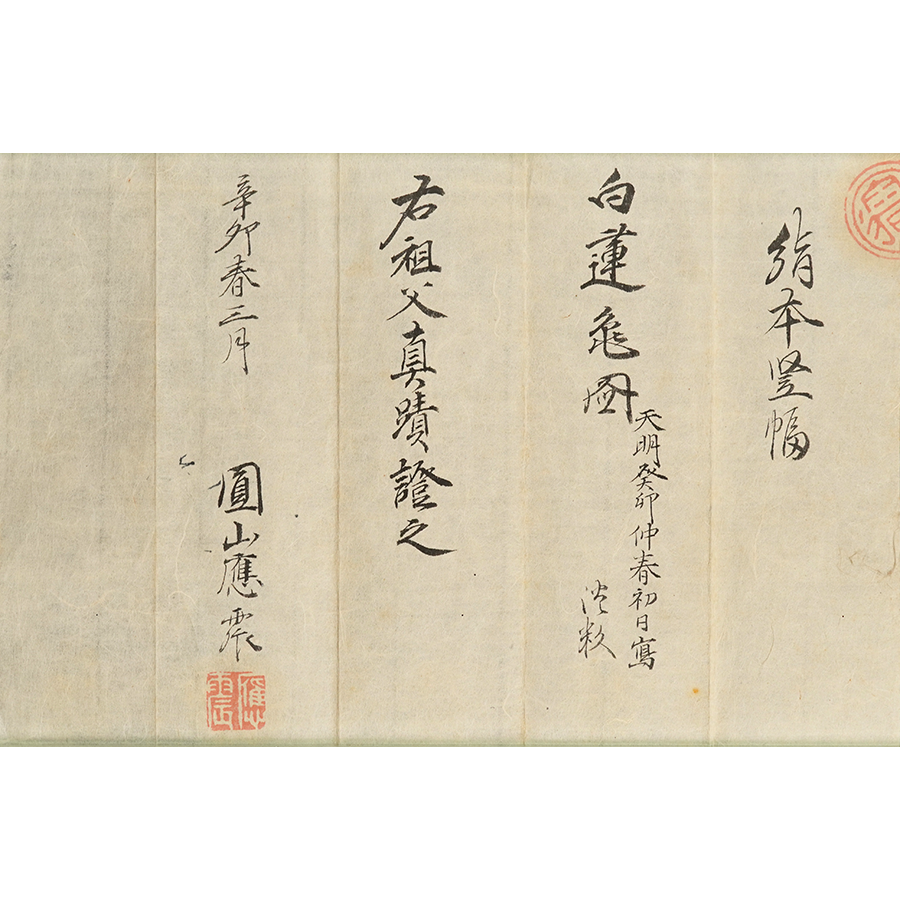 絹本竪幅
白蓮亀図
天明癸卯仲春初日寫
落款
右祖父真蹟證之
辛卯春三月
圓山應震
應震